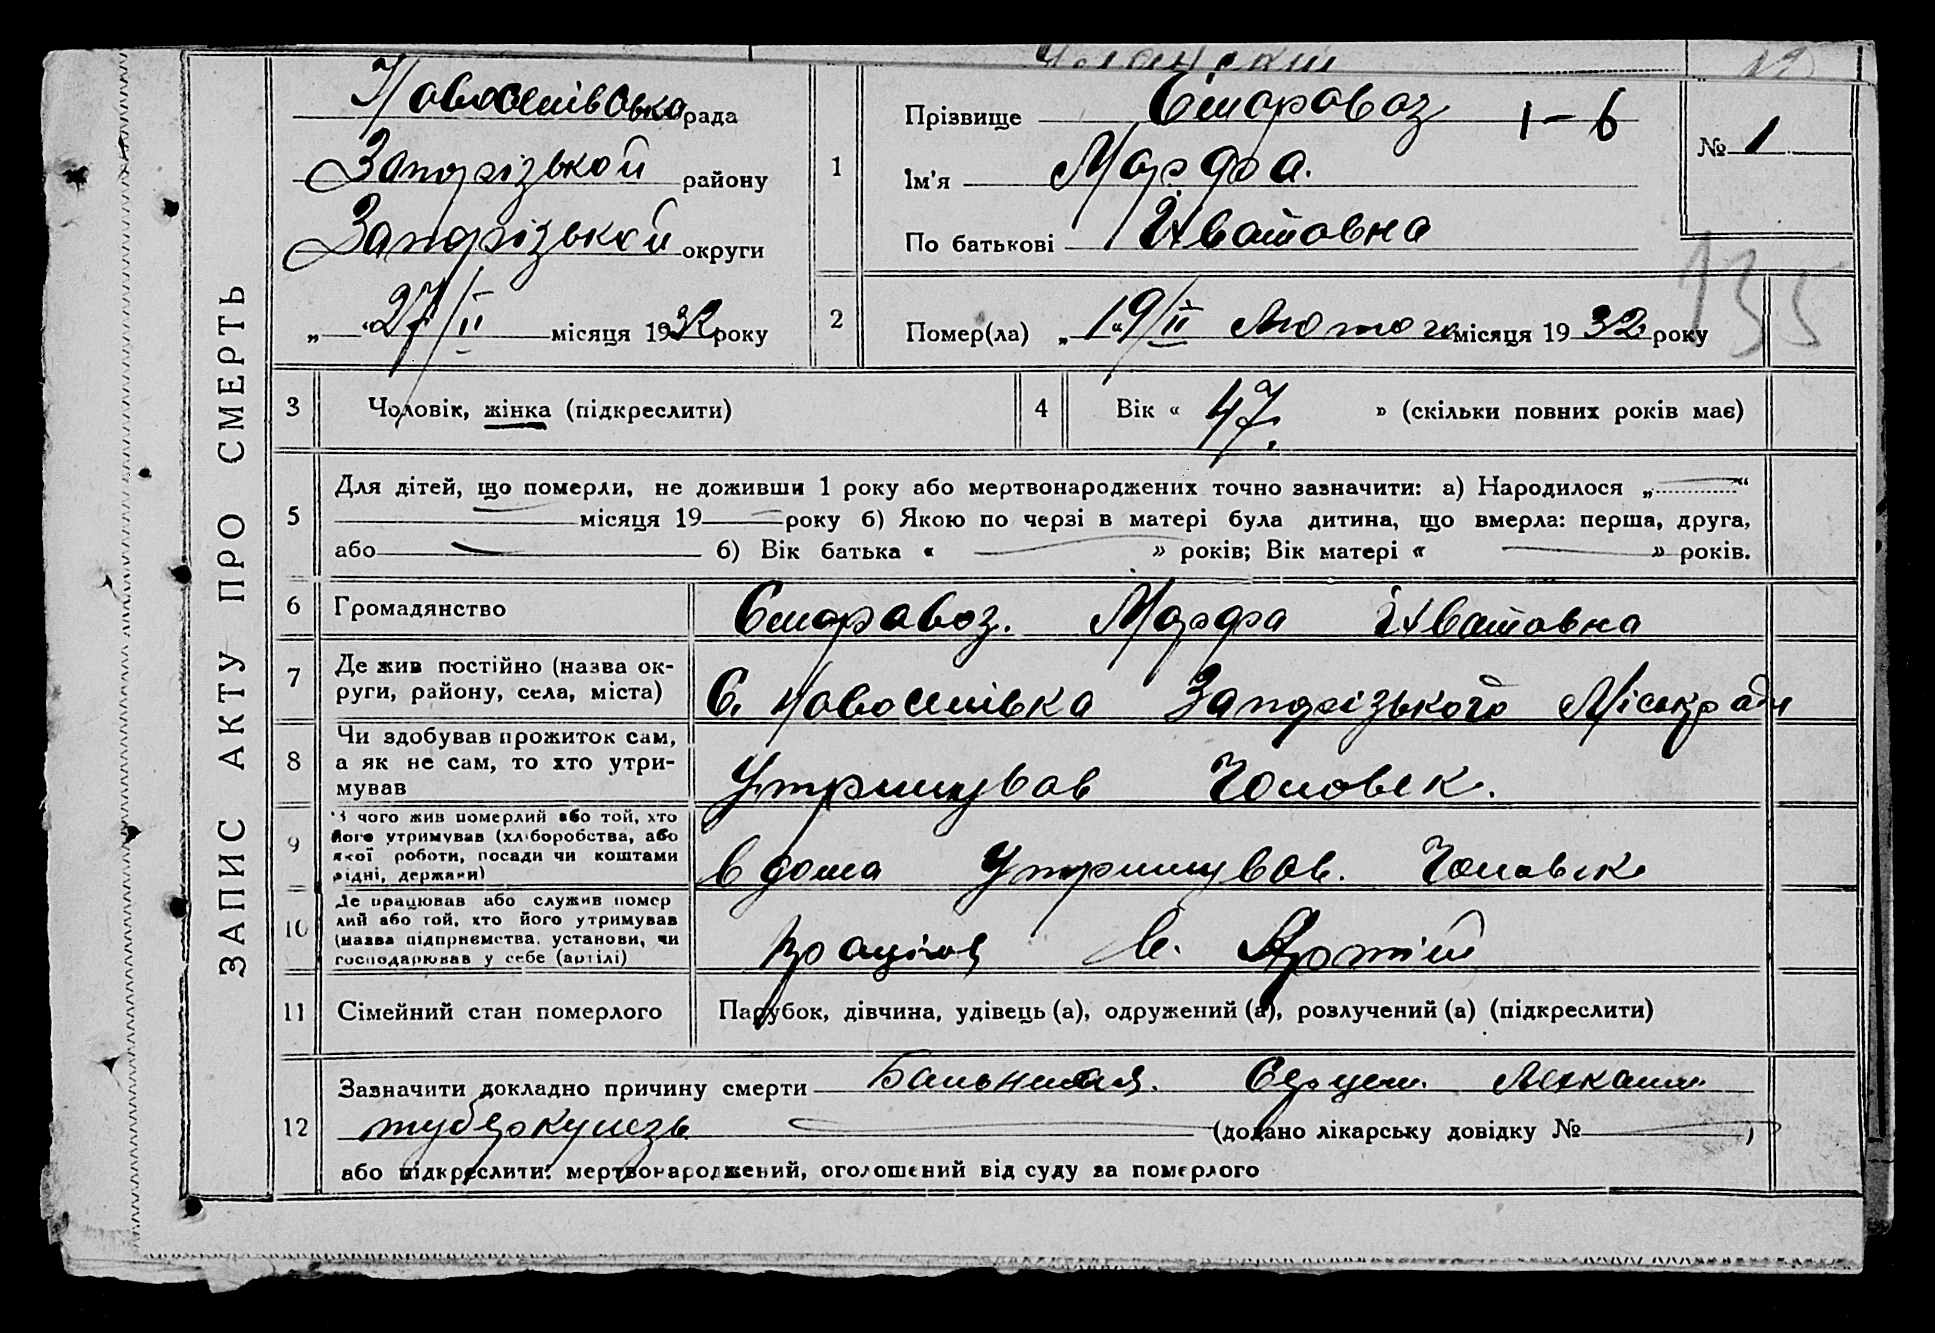 Новоселівська рада
Запорізької району
Запорізької округи
„ 27/II місяця 1932 року
1
Прізвище
1–6
Ім'я Марфа.
По батькові
№ 1
135
2
Помер(ла) „19/II Лютого місяця 1932 року
ЗАПИС АКТУ ПРО СМЕРТЬ
3 Чоловік, жінка (підкреслити)
4 Вік « 47. » (скільки повних років має)
5 Для дітей, що померли, не доживши 1 року або мертвонароджених точно зазначити: а) Народилося „ “
місяця 19 року б) Якою по черзі в матері була дитина, що вмерла: перша, друга,
або б) Вік батька « » років; Вік матері « » років.
6 Громадянство Марфа
7 Де жив постійно (назва ок-
руги, району, села, міста)
С. Новоселівка Запорізького Міськради
8 Чи здобував прожиток сам,
а як не сам, то хто утри-
мував
Утримував Чоловек.
9 З чого жив померлий або той, хто
його утримував (хліборобства, або
якої роботи, посади чи коштами
рідні, держави)
в дома Утримував. Чоловек
10 Де працював або служив помер
лий або той, хто його утримував
(назва підприємства, установи, чи
господарював у себе (артілі)
11 Сімейний стан померлого Парубок, дівчина, удівець (а), одружений (а), розлучений (а) (підкреслити)
12 Зазначити докладно причину смерти
туберкулезь (додано лікарську довідку № )
або підкреслити: мертвонароджений, оголошений від суду за померлого